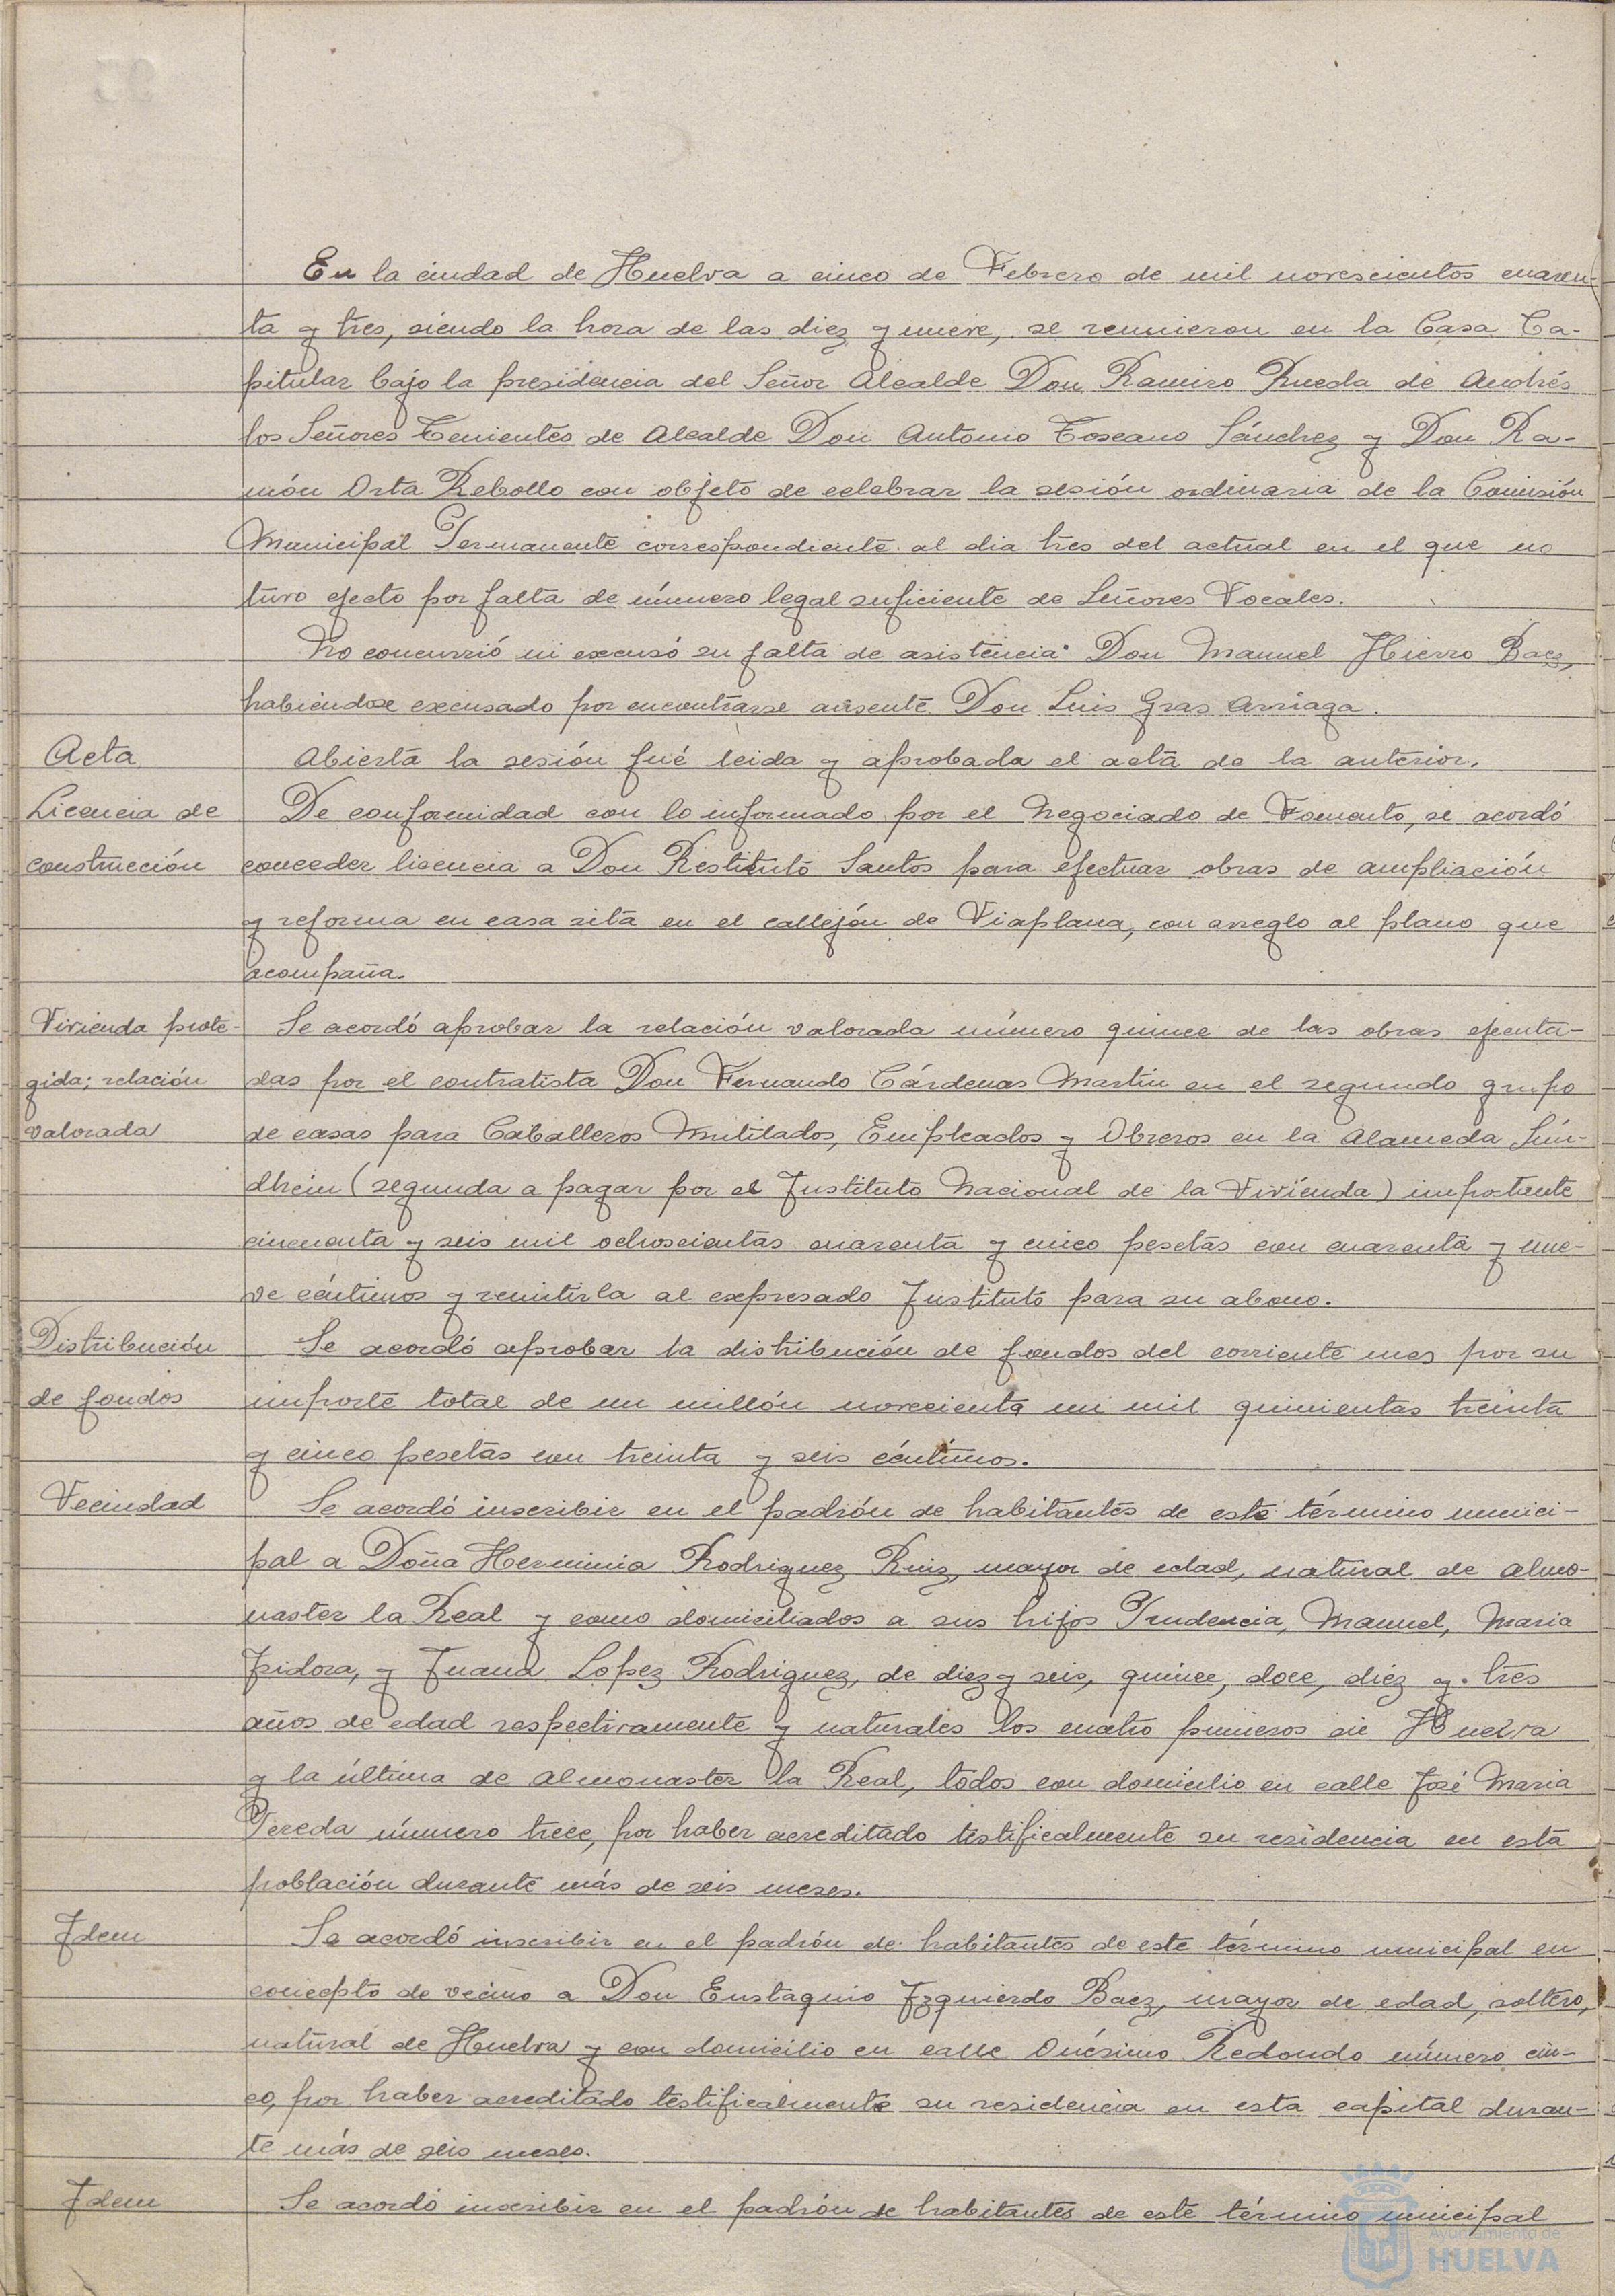 En la ciudad de Huelva a cinco de Febrero de mil novescientos cuaren-
ta y tres, siendo la hora de las diez y nueve, se reunieron en la Casa Ca-
pitular bajo la presidencia del Señor Alcalde Don Ramiro Rueda de Andrés
los Señores Tenientes de Alcalde Don Antonio Toscano Sánchez y Don Ra-
món Orta Rebollo con objeto de celebrar la sesión ordinaria de la Comisión
Municipal Permanente correspondiente al dia tres del actual en el que no
tuvo efecto por falta de número legal suficiente de Señores Vocales.
No concurrió ni excusó su falta de asistencia Don Manuel Hierro Baez,
habiendose excusado por encontrarse ausente Don Luis Gras Arriaga.
Acta Abierta la sesión fué leida y aprobada el acta de la anterior.
Licencia de De conformidad con lo informado por el Negociado de Fomento, se acordó
construcción conceder licencia a Don Restituto Santos para efectuar obras de ampliación
y reforma en casa sita en el callejón de Viaplana, con arreglo al plano que
acompaña.
Vivienda prote- Se acordó aprobar la relación valorada número quince de las obras ejecuta-
gida; relación das por el contratista Don Fernando Cárdenas Martin en el segundo grupo
valorada de casas para Caballeros Mutilados, Empleados y Obreros en la Alameda Sún-
dhein (segunda a pagar por el Instituto Nacional de la Vivienda) importante
cincuenta y seis mil ochoscientas cuarenta y cinco pesetas con cuarenta y nue-
ve céntimos y remitirla al expresado Instituto para su abono.
Distribución Se acordó aprobar la distribución de fondos del corriente mes por su
de fondos importe total de un millón novecienta un mil quinientas treinta
y cinco pesetas con treinta y seis céntimos.
Vecindad Se acordó inscribir en el padrón de habitantes de este término munici-
pal a Doña Herminia Rodriguez Ruiz, mayor de edad, natural de Almo-
naster la Real y como domiciliados a sus hijos Prudencia, Manuel, Maria
Isidora, y Juana Lopez Rodriguez, de diez y seis, quince, doce, diez y tres
años de edad respectivamente y naturales los cuatro primeros de Huelva
y la última de Almonaster la Real, todos con domicilio en calle José Maria
Pereda número trece, por haber acreditado testificalmente su residencia en esta
población durante más de seis meses.
Idem Se acordó inscribir en el padrón de habitantes de este término municipal en
concepto de vecino a Don Eustaquio Izquierdo Baez, mayor de edad, soltero,
natural de Huelva y con domicilio en calle Onésimo Redondo número cin-
co, por haber acreditado testificalmente su residencia en esta capital duran-
te más de seis meses.
Idem Se acordó inscribir en el padrón de habitantes de este término municipal
Ayuntamiento de
HUELVA